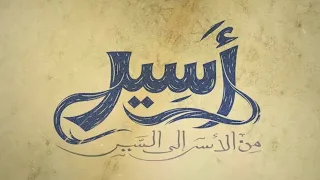 أَسِير
مِنَ الأسر إلى السَّير